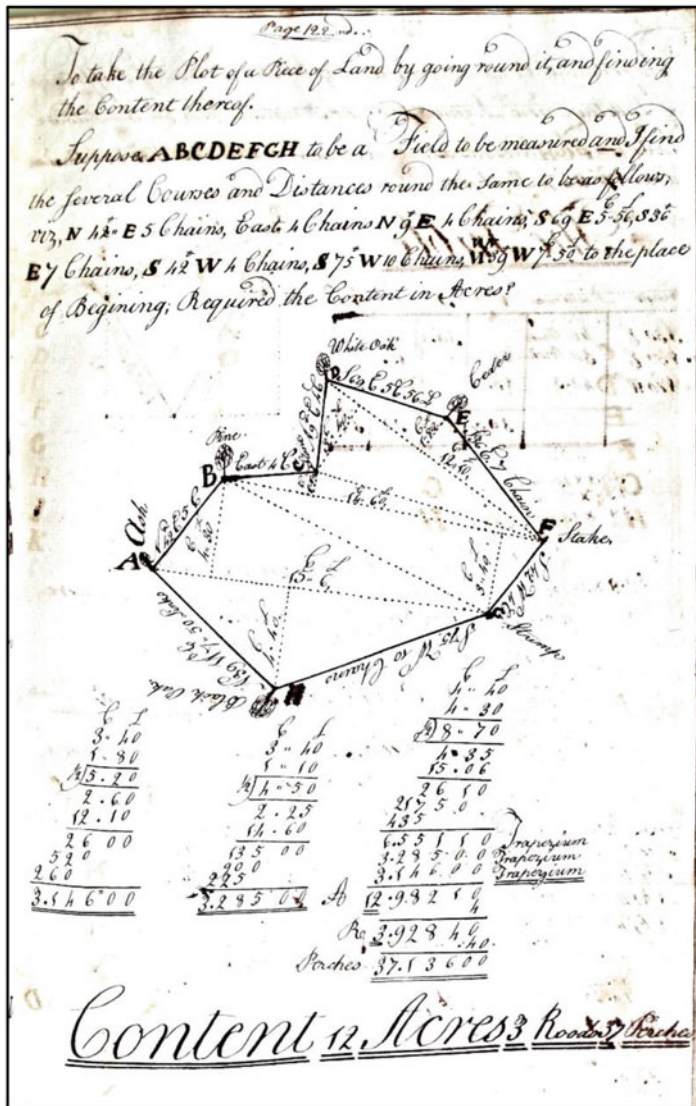 Page 122nd
To take the Plot of a Piece of Land by going round it, and finding
the Content thereof.
Suppose ABCDEFGH to be a Field to be measured and I find
the several Courses and Distances round the same to be as follows,
viz, N 42d E 5 Chains, East 4 Chains N 9d E 4 Chains, S 69 E 5C 56L, S 36d
E 7 Chains, S 42d W 4 Chains, S 75d W 10 Chains, N 39d W 7C 50L to the place
of Begining; Required the Content in Acres?
White Oak
D
Ceder
E
Pine
B
East 4 C
Ash
A
14.60
12.10
E 7 Chain
F
Stake
4.30
3.40
15.6
4.40
S 75 W 10 Chains
N 39 W 7C 50 Links
Stump
Black Oak
H
C L
3.40
1.80
½)5.20
2.60
12.10
2600
520
260
3.14600
C L
3.40
1.10
½)4.50
2.25
14.60
13500
900
225
3.28500
C L
4.40
4.30
½)8.70
4.35
15.06
2610
21750
435
6.55110 Trapezium
3.28500 Trapezium
3.14600 Trapezium
A 12.98210
4
R 3.92840
40
Perches 37.13600
Content 12 Acres 3 Roods 37 Perches